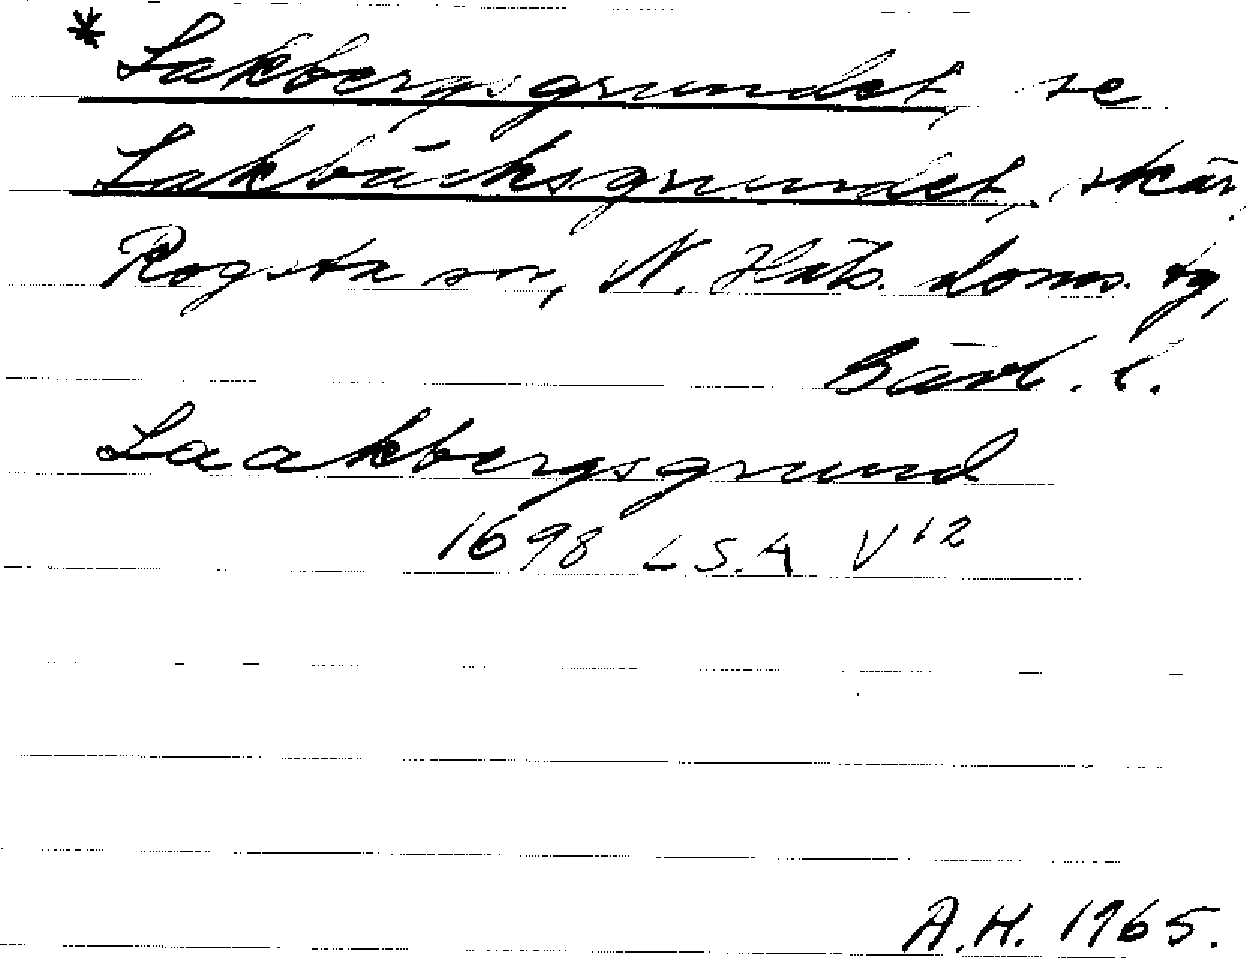 * Lakbergsgrundet, se
Lakbäcksgrundet, skär,
Rogsta sn, N. Häls. doms. tg,
Gävl. l.
Laakbergsgrund
1698 LSA V 12
A.H. 1965.